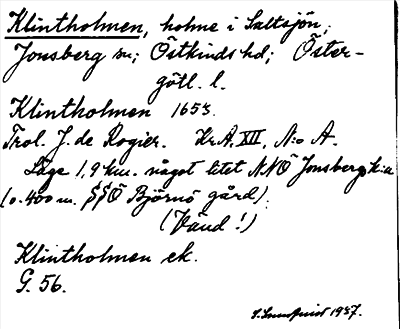 Klintholmen, holme i Saltsjön;
Jonsberg sn; Östkinds hd; Öster-
götl. l.
Klintholmen 1653.
Trol. J. de Rogier. Kr.A. XII, N:o A.
Läge 1,9 km. något litet NNÖ Jonsbergs k:a
(o. 400 m. SSÖ Björnö gård).
(Vänd!)
Klintholmen ek.
G. 56.
1937.